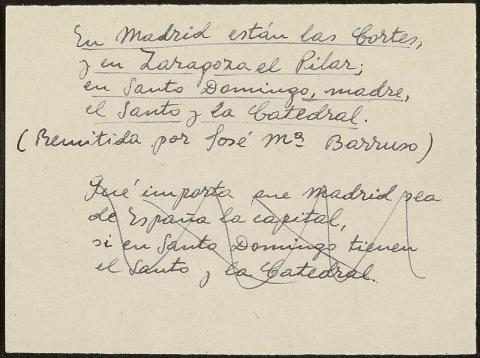 En Madrid están las Cortes,
y en Zaragoza el Pilar;
en Santo Domingo, madre,
el Santo y la Catedral.
(Remitida por José Mª Barruso)
Qué importa que Madrid sea
de España la capital,
si en Santo Domingo tienen
el Santo y la Catedral.